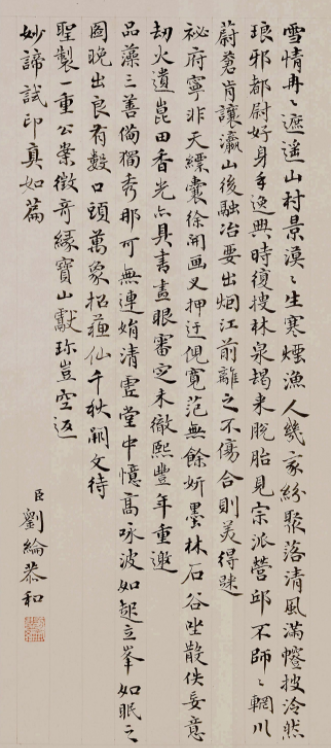 雪情冉〻遮遥山村景漠〻生寒煙漁人幾家紛聚落清風滿幰披泠然
琅邪都尉好身手逸興時復搜林泉朅来脫胎見宗派營邱不師〻輞川
蔚蒼肯讓瀛山後融冶要出烟江前離之不傷合則美得
祕府寧非天縹囊徐開画叉押迂倪寬范無餘妍墨林石谷坐散佚妄意
劫火遺崑田香光亦具書畫眼審定未徹熙豐年重邀
品藻三善備獨秀那可無連娟清虛堂中憶高咏波如起立峯如眠之
圖晚出良有數口頭萬象招蘓仙千秋嗣文待
聖製一重公案徵奇緣寶山獻珎豈空返
妙諦試印真如篇
臣劉綸恭和